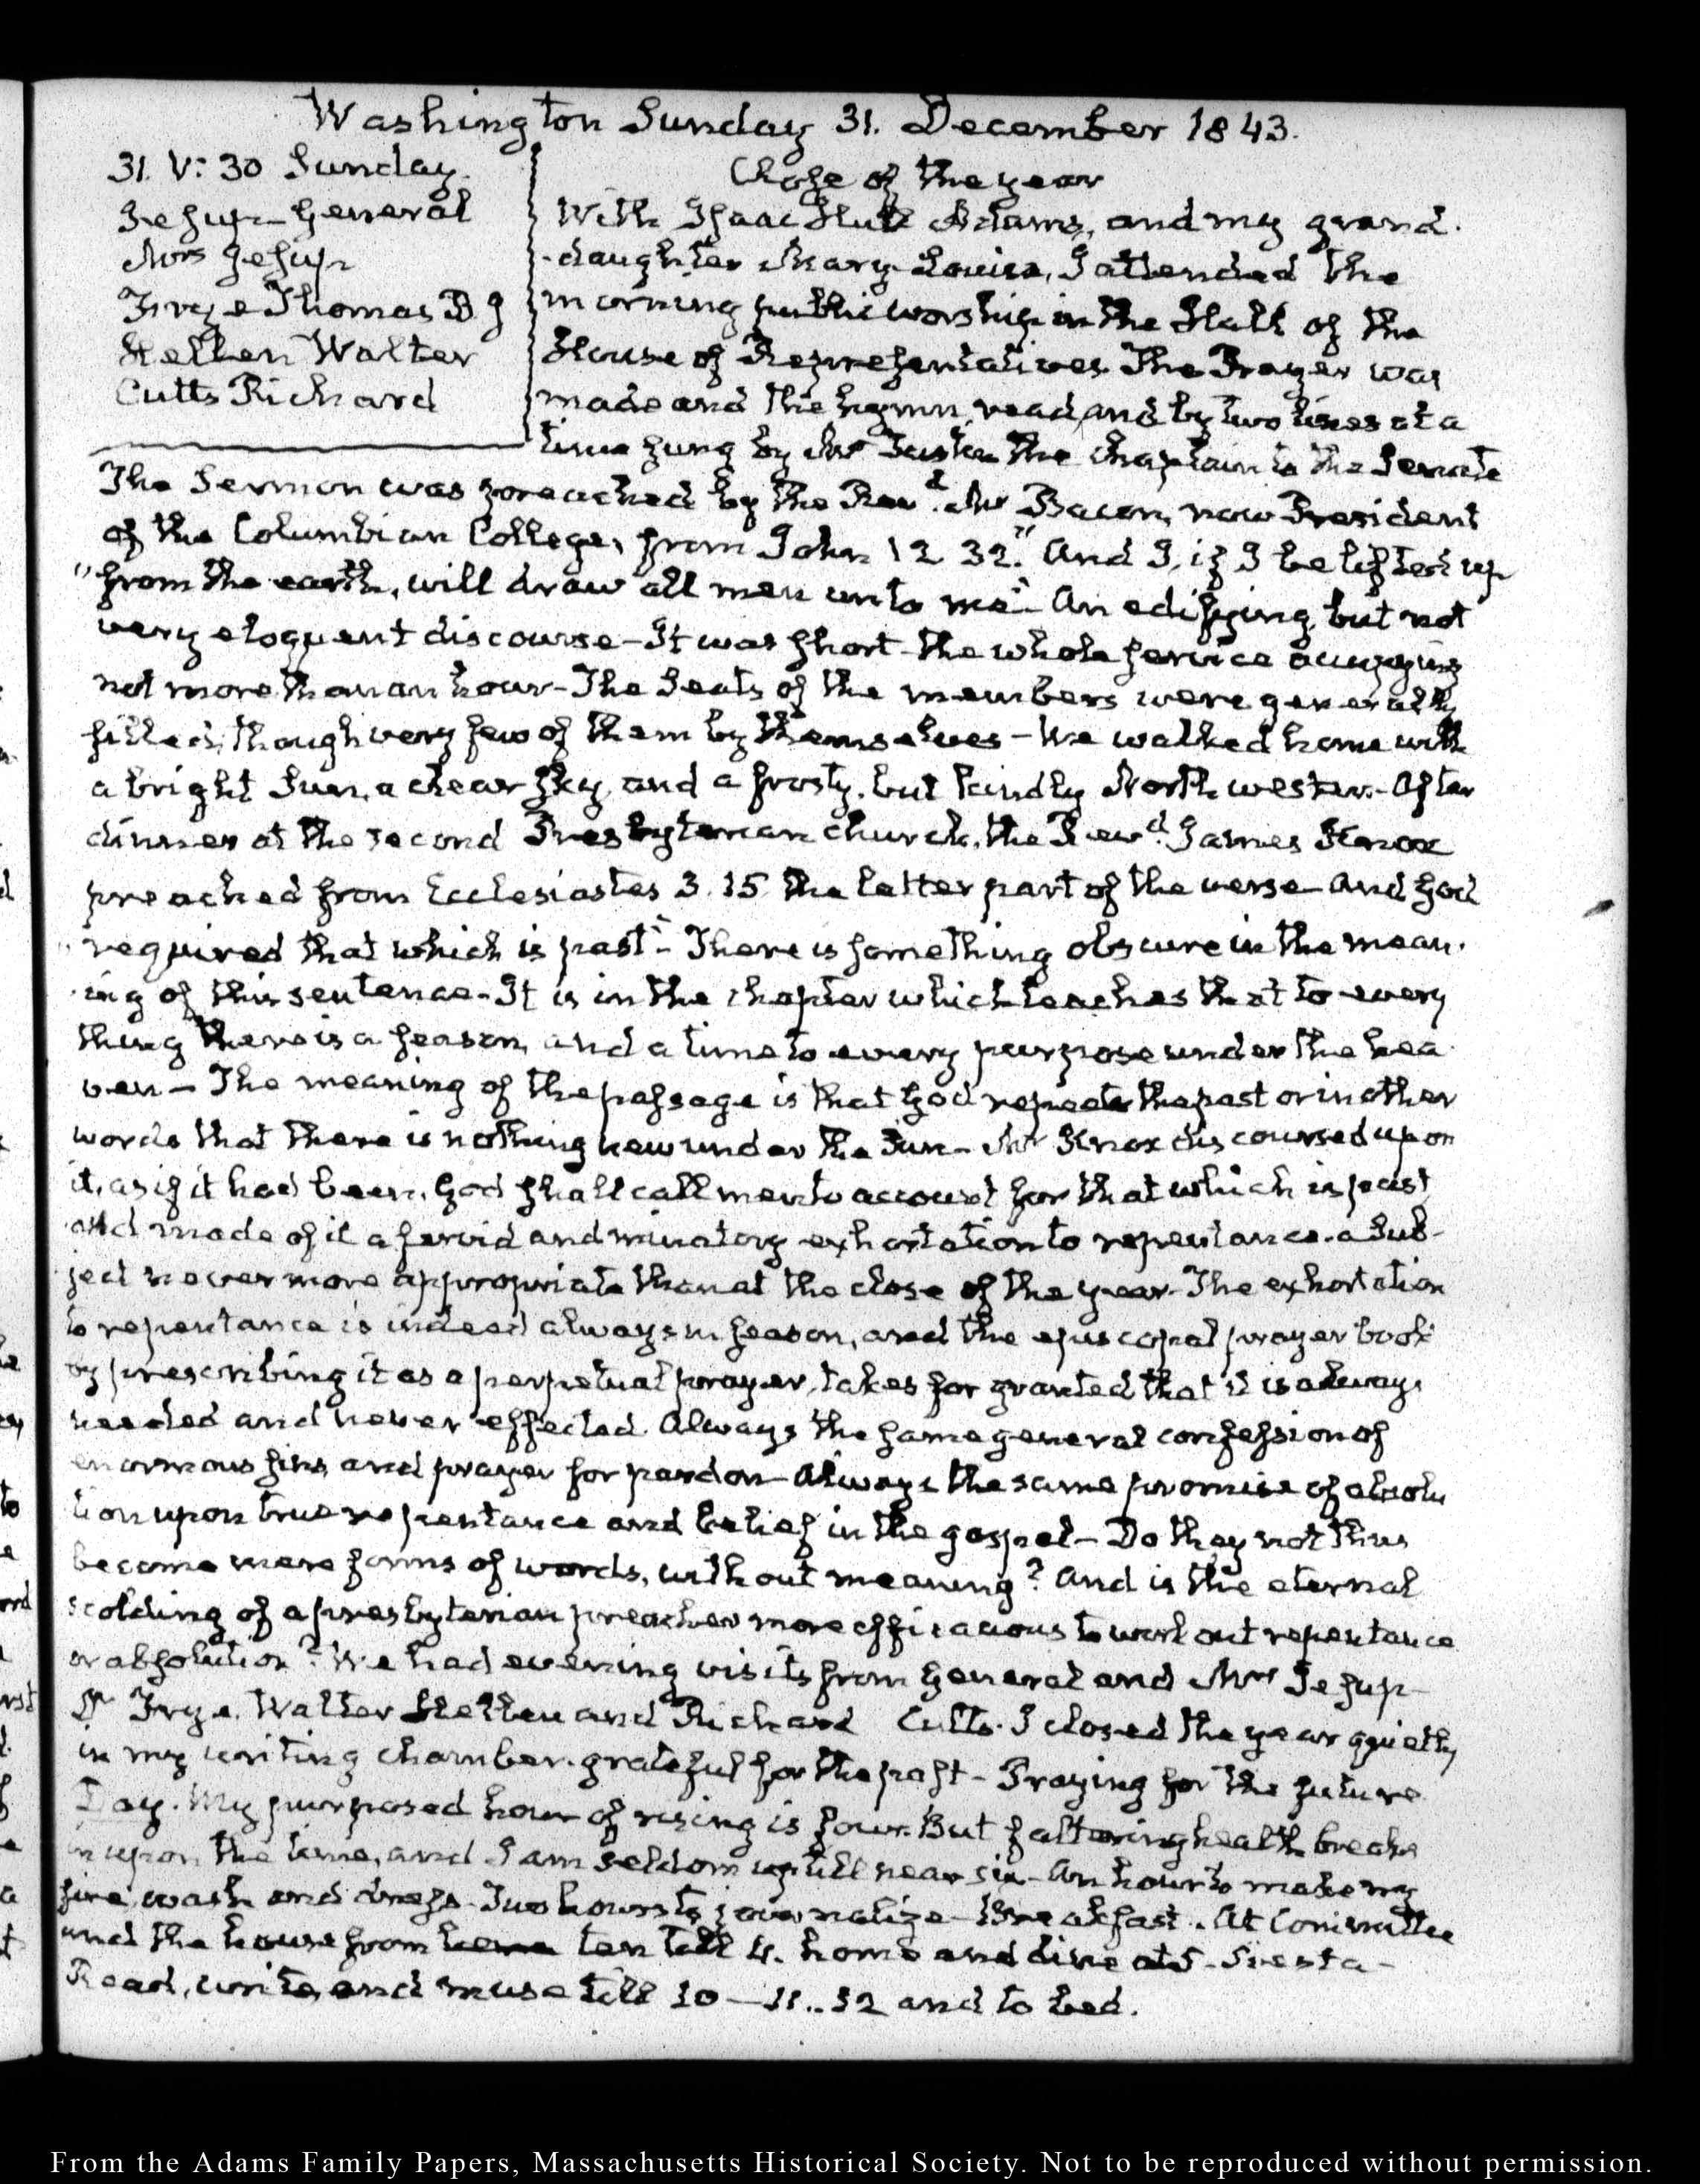 Washington Sunday 31. December 1843.
31. V: 30 Sunday.
Jesup General
Mrs Jesup
Frye Thomas B J
Hellen Walter
Cutts Richard
Close of the year
With Isaac Hull Adams, and my grand-
-daughter Mary-Louisa, I attended the
morning public worship in the Hall of the
House of Representatives. The Prayer was
made and the hymn read, and by two lines at a
time sung by Mr Tustin the Chaplain to the Senate
The Sermon was preached by the Revd. Mr Bacon, now President
of the Columbian College, from John 12 32. "And I, if I be lifted up
"from the earth, will draw all men unto me"- An edifying, but not
very eloquent discourse—It was short—the whole service occupying
not more than an hour—The Seats of the members were generally
filled, though very few of them by themselves—We walked home with
a bright Sun, a clear sky, and a frosty, but kindly North wester.—After
dinner at the second Presbyterian church, the Revd. James Knox
preached from Ecclesiastes 3. 15 the latter part of the verse—And God
"required that which is past"- There is something obscure in the mean-
-ing of this sentence—It is in the chapter which teaches that to every
thing there is a season, and a time to every purpose under the hea-
ven—The meaning of the passage is that God repeats the past or in other
words that there is nothing new under the Sun—Mr Knox discoursed upon
it, as if it had been, God shall call men to account for that which is past,
and made of it a fervid and minatory exhortation to repentance—a sub-
ject never more appropriate than at the close of the year—The exhortation
to repentance is indeed always in season, and the episcopal prayer book
by prescribing it as a perpetual prayer, takes for granted that it is always
needed and never effected. Always the same general confession of
enormous sins, and prayer for pardon—Always the same promise of absolu
tion upon true repentance and belief in the gospel—Do they not thus
become mere forms of words, without meaning? And is the eternal
scolding of a presbyterian preacher more efficacious to work out repentance
or absolution? We had evening visits from General and Mrs Jesup—
Dr Frye, Walter Hellen and Richard Cutts. I closed the year quietly
in my writing chamber. grateful for the past—Praying for the future
Day. My purposed hour of rising is four. But faltering health breaks
in upon the time, and I am seldom up till near six—An hour to make my
fire, wash and dress. Two hours to journalize—Breakfast. At Committee
and the house from ten till 4. home and dine at 5. Siesta—
Read, write, and muse till 10—11..12 and to bed.
From the Adams Family Papers, Massachusetts Historical Society. Not to be reproduced without permission.